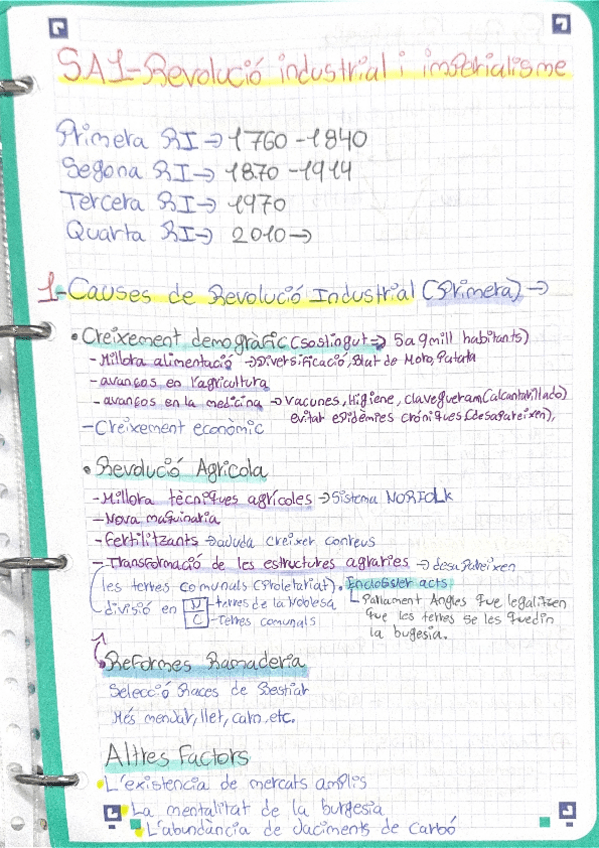 SA1-Revolució industrial i imperialisme
Primera RI → 1760-1840
Segona RI → 1870-1914
Tercera RI → 1970
Quarta RI → 2010 →
1-Causes de Revolució Industrial (Primera) →
• Creixement demogràfic (sostingut → 5 a 9 mill habitants)
- Millora alimentació → Diversificació, Blat de Moro, Patata
- avanços en l'agricultura
- avanços en la medicina → Vacunes, Higiene, clavegueram (alcantarillado)
evitar epidèmies cròniques (desapareixen),
- Creixement econòmic
• Revolució Agrícola
- Millora tècniques agrícoles → Sistema NORFOLK
- Nova maquinaria
- Fertilitzants → ajuda créixer conreus
- Transformació de les estructures agraries → desapareixen
les terres comunals (Proletariat). Enclossier acts
divisió en N - terres de la Noblesa
C - Terres comunals
Parlament Angles que legalitzen
que les terres se les quedin
la bugesia.
Reformes Ramaderia
Selecció Races de Bestiar
Més menjar, llet, carn, etc.
Altres Factors
L'existencia de mercats amplis
La mentalitat de la burgesia
L'abundància de Jaciments de Carbó